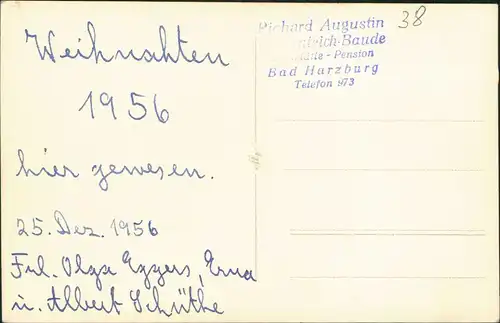 Weihnahten
1956
hier gewesen.
25. Dez. 1956
Frl. Olga Eggers, Erna
u. Albert Schüthe
38
Richard Augustin
Pension
Bad Harzburg
Telefon 973